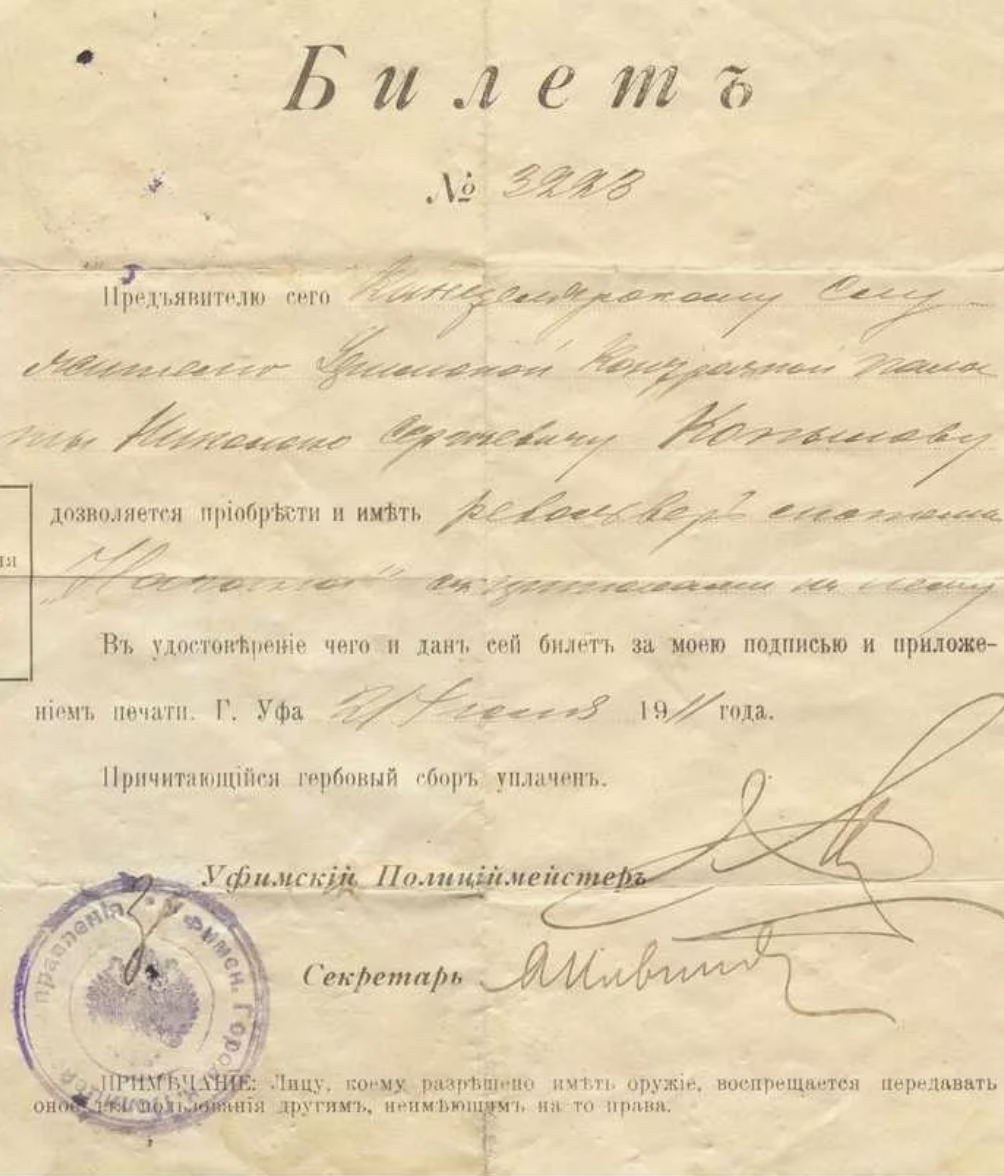 Билетъ
№ 3228
Предъявителю сего Канцелярскому Слу
жителю Уфимской Казенной пала
ты Николаю Сергѣевичу Копылову
дозволяется пріобрѣсти и имѣть револьверъ системы
„Наганъ“ съ патронами къ нему
Въ удостовѣреніе чего и данъ сей билетъ за моею подписью и приложе-
ніемъ печати. Г. Уфа 21 1911 года.
Причитающійся гербовый сборъ уплаченъ.
Уфимскій Полиціймейстеръ
Секретарь
Уфимск. Город. Полиц. правленія
ПРИМѢЧАНІЕ: Лицу, коему разрѣшено имѣть оружіе, воспрещается передавать
оное для пользованія другимъ, неимѣющимъ на то права.